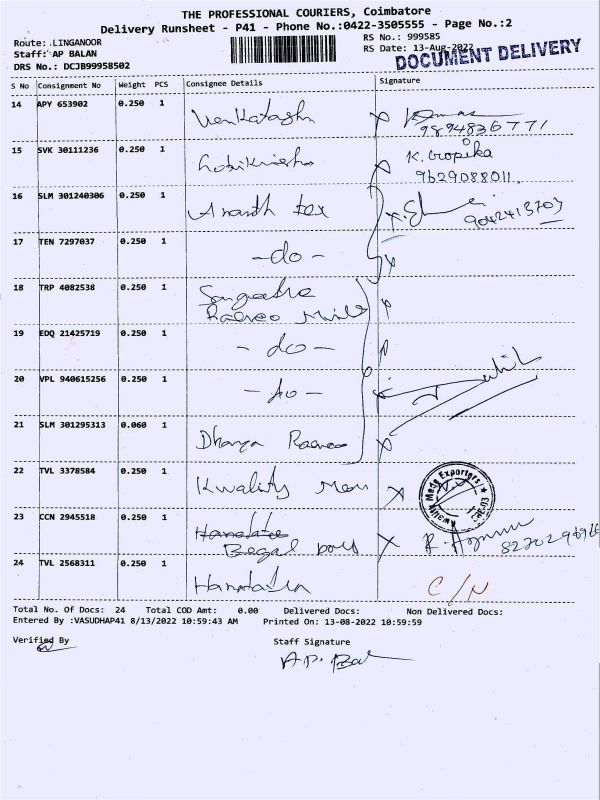 THE PROFESSIONAL COURIERS, Coimbatore
Delivery Runsheet - P41 - Phone No.:0422-3505555 - Page No.:2
Route: LINGANOOR
RS No.: 999585
Staff: AP BALAN
RS Date: 13-Aug-2022
DOCUMENT DELIVERY
DRS No.: DCJB99958502
S No Consignment No Weight PCS Consignee Details Signature
14 APY 653902 0.250 1 Venkatesh
9894836771
15 SVK 30111236 0.250 1 K. Gopika
9629088011.
16 SLM 301240306 0.250 1 Ananth tex 9042413703
17 TEN 7297037 0.250 1 -do-
18 TRP 4082538 0.250 1 Sangeetha
Mills
19 EDQ 21425719 0.250 1 - do -
20 VPL 940615256 0.250 1 - do -
21 SLM 301295313 0.060 1 Dhanya
22 TVL 3378584 0.250 1 Kwality Men
23 CCN 2945518 0.250 1
24 TVL 2568311 0.250 1 C/N
Total No. Of Docs: 24 Total COD Amt: 0.00 Delivered Docs: Non Delivered Docs:
Entered By :VASUDHAP41 8/13/2022 10:59:43 AM Printed On: 13-08-2022 10:59:59
Verified By Staff Signature
A.P. Bal